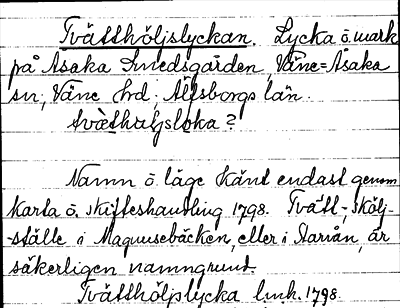 Tvätthöljslyckan. Lycka å mark
på Åsaka Smedsgården, Väne-Åsaka
sn, Väne hrd, Älfsborgs län.
?
Namn o. läge känt endast genom
karta o. skifteshandling 1798. Tvätt-, Skölj-
ställe i Magnusebäcken, eller i Stariån, är
säkerligen namngrund.
Tvätthöljslycka lmh. 1798.